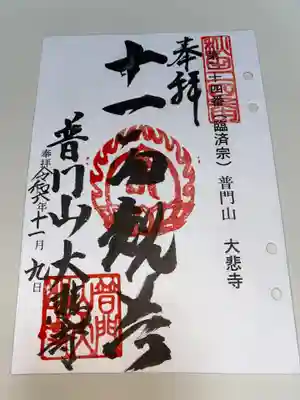 奉拝
第二十四番（臨済宗）　普門山　大悲寺
十一面観音
普門山大悲寺
奉拝令和六年十一月九日